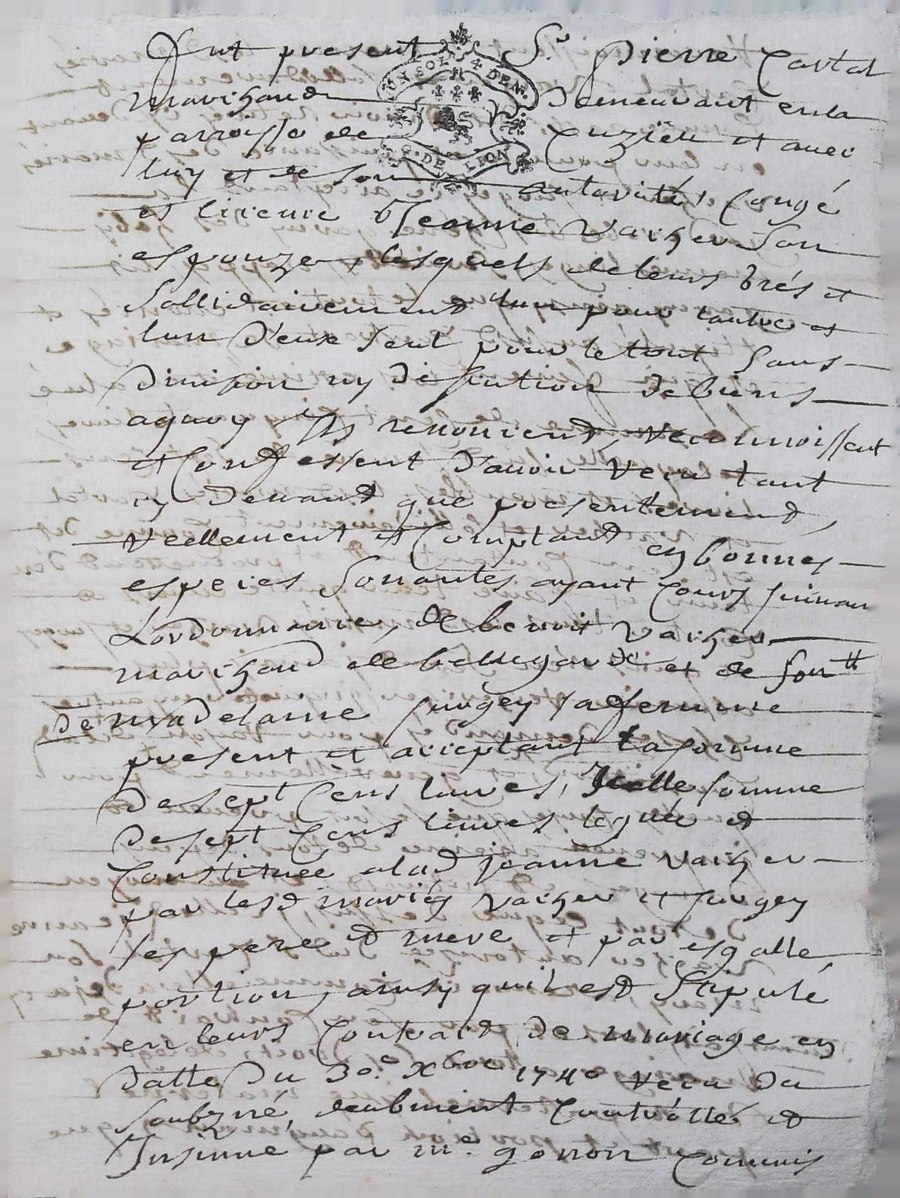 Fut present Sr. pierre Cartal
UN SOL 4 DEN.
G. DE LION
marchand Demeurant en la
parroisse de Cuzieu et avec
luy et de son autorité, Congé
et licence Jeanne Varher son
espouze, lesquels de leurs grés et
sollidairement lun pour lautre et
lun d'eux seul pour le tout sans
division ny discution de biens
aquoy ils renoncent reconnoissent
et Confessent d'avoir receu tant
cy devand que presentement,
reellement et Comptand en bonnes
especies sonantes ayant Cours suivan
Lordonnance, de benoit varher
marchand de bellegarde et de
de madelaine sa femme
present et acceptant la somme
de sept Cens livres, Icelle somme
de sept Cens livres leguée et
Constituée a lad jeanne Varher
par lesd mariés varher et
ses pere et mere et par esgalle
portion, ainsy quil est stipulé
en leurs Contract de mariage en
datte du 30e. xbre 1740 receu du
soubzné, deubment Controllé et
Insinué par me. gonon Commis